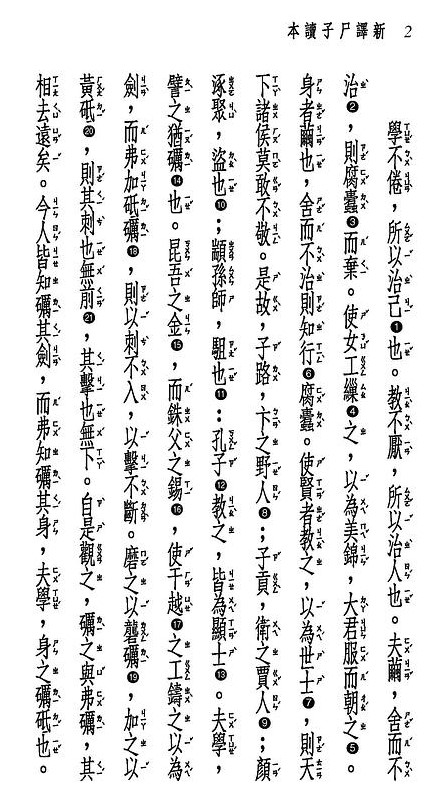 2 新譯尸子讀本
學不倦，所以治己❶也。教不厭，所以治人也。夫繭，舍而不
治❷，則腐蠹❸而棄。使女工繅❹之，以為美錦，大君服而朝之❺。
身者繭也，舍而不治則知行❻腐蠹。使賢者教之，以為世士❼，則天
下諸侯莫敢不敬。是故，子路，卞之野人❽；子貢，衛之賈人❾；顏
涿聚，盜也❿；顓孫師，駔也⓫：孔子⓬教之，皆為顯士⓭。夫學，
譬之猶礪⓮也。昆吾之金⓯，而銖父之錫⓰，使干越⓱之工鑄之以為
劍，而弗加砥礪⓲，則以刺不入，以擊不斷。磨之以礱礪⓳，加之以
黃砥⓴，則其刺也無前㉑，其擊也無下。自是觀之，礪之與弗礪，其
相去遠矣。今人皆知礪其劍，而弗知礪其身，夫學，身之礪砥也。